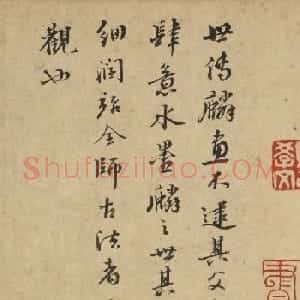 世傳麟畫不逮其父
肆意水墨麟之世其
細潤殆全師古法者
觀此
Shufaziliao.com